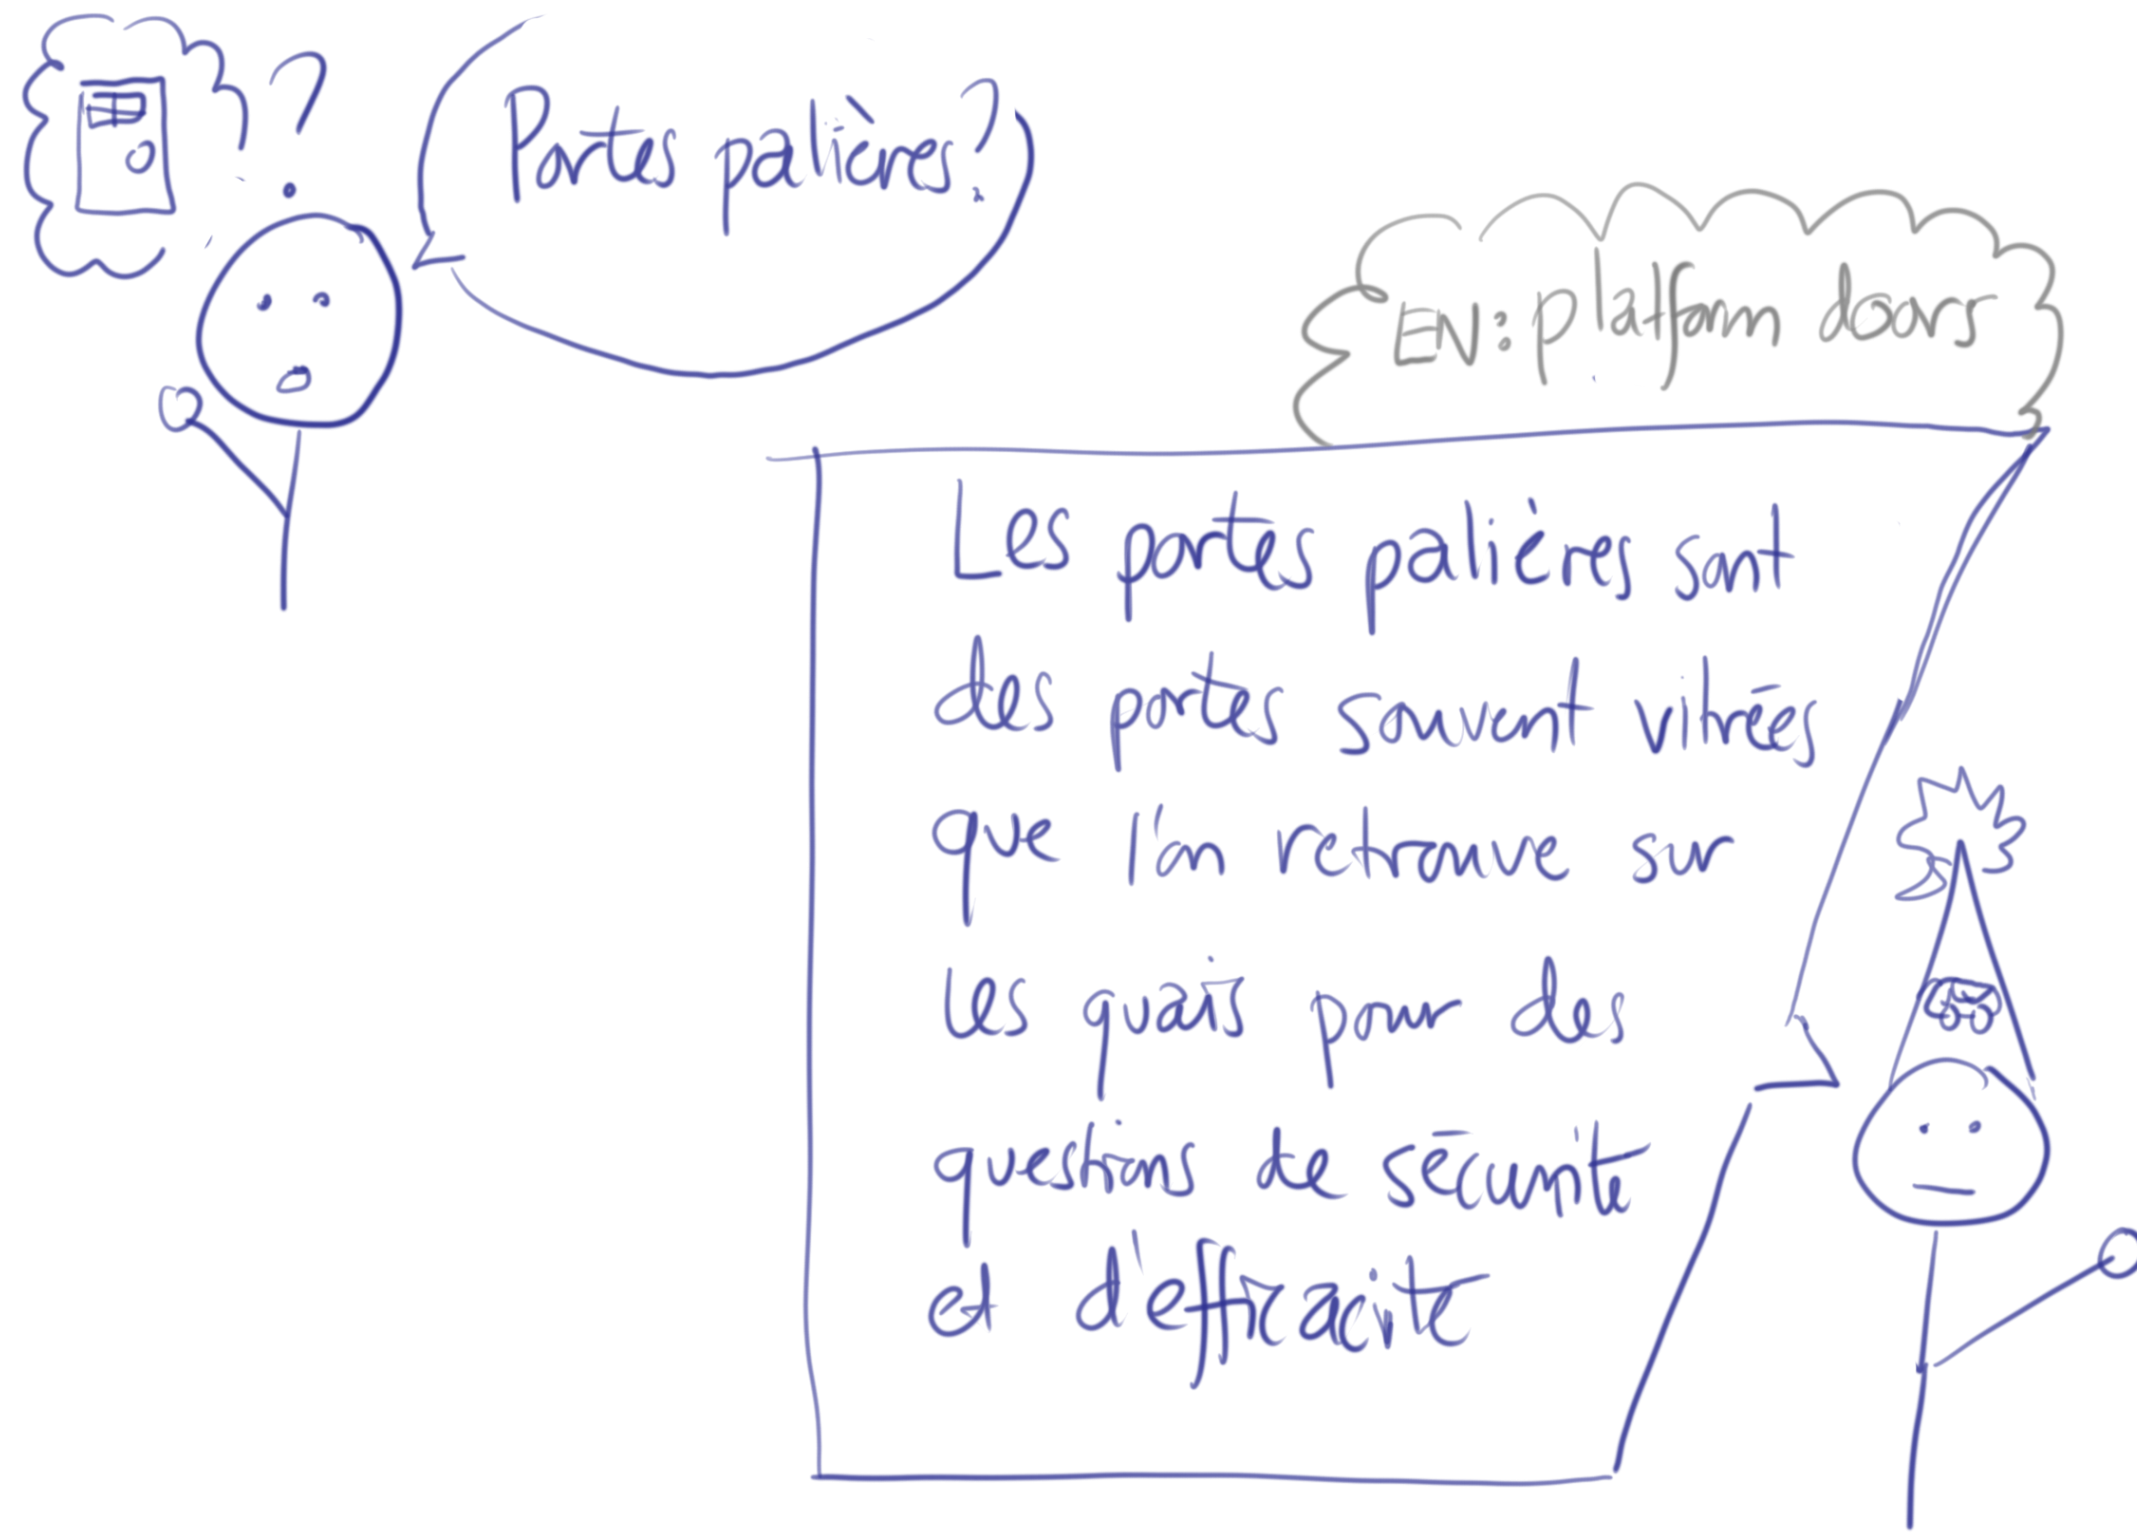 ?
Portes palières?
EN: platform doors
Les portes palières sont
des portes souvent vitrées
que l'on retrouve sur
les quais pour des
questions de sécurité
et d'efficacité